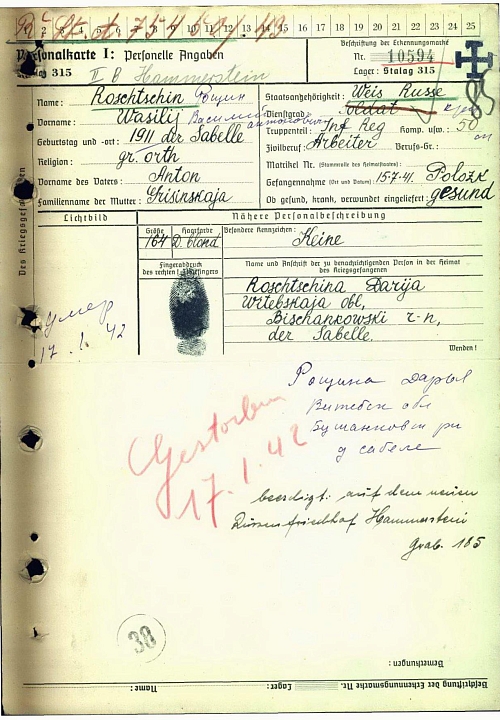 1 2 3 4 5 6 7 8 9 10 11 12 13 14 15 16 17 18 19 20 21 22 23 24 25
Personalkarte I: Personelle Angaben
Beschriftung der Erkennungsmarke
Nr. 10594
Stalag 315
II B Hammerstein
Lager: Stalag 315
Des Kriegsgefangenen
Name: Roschtschin Рощин
Vorname: Wasilij Василий Антонович
Geburtstag und -ort: 1911 der Sabelle
Religion: gr. orth
Vorname des Vaters: Anton
Familienname der Mutter: Grisinskaja
Staatsangehörigkeit: Weis Russe
Dienstgrad: Soldat
Truppenteil: Inf Reg Komp. usw.: 50
Zivilberuf: Arbeiter Berufs-Gr.:
Matrikel Nr. (Stammrolle des Heimatstaates):
Gefangennahme (Ort und Datum): 15.7.41. Polozk
Ob gesund, krank, verwundet eingeliefert: gesund
Lichtbild
Nähere Personalbeschreibung
Größe Haarfarbe Besondere Kennzeichen:
164 D. blond Keine
Fingerabdruck
des rechten Zeigefingers
Name und Anschrift der zu benachrichtigenden Person in der Heimat
des Kriegsgefangenen
Roschtschina Darija
Witebskaja obl,
Bischankowski r-n,
der Sabelle.
Wenden!
умер
17.1.42
Рощина Дарья
Витебск обл
Бушанковск ри
д сабеле
Gestorben
17.1.42
beerdigt: auf dem neuen
Russenfriedhof Hammerstein
Grab. 185
38
Bemerkungen:
Beschriftung der Erkennungsmarke Nr. Lager: Name: